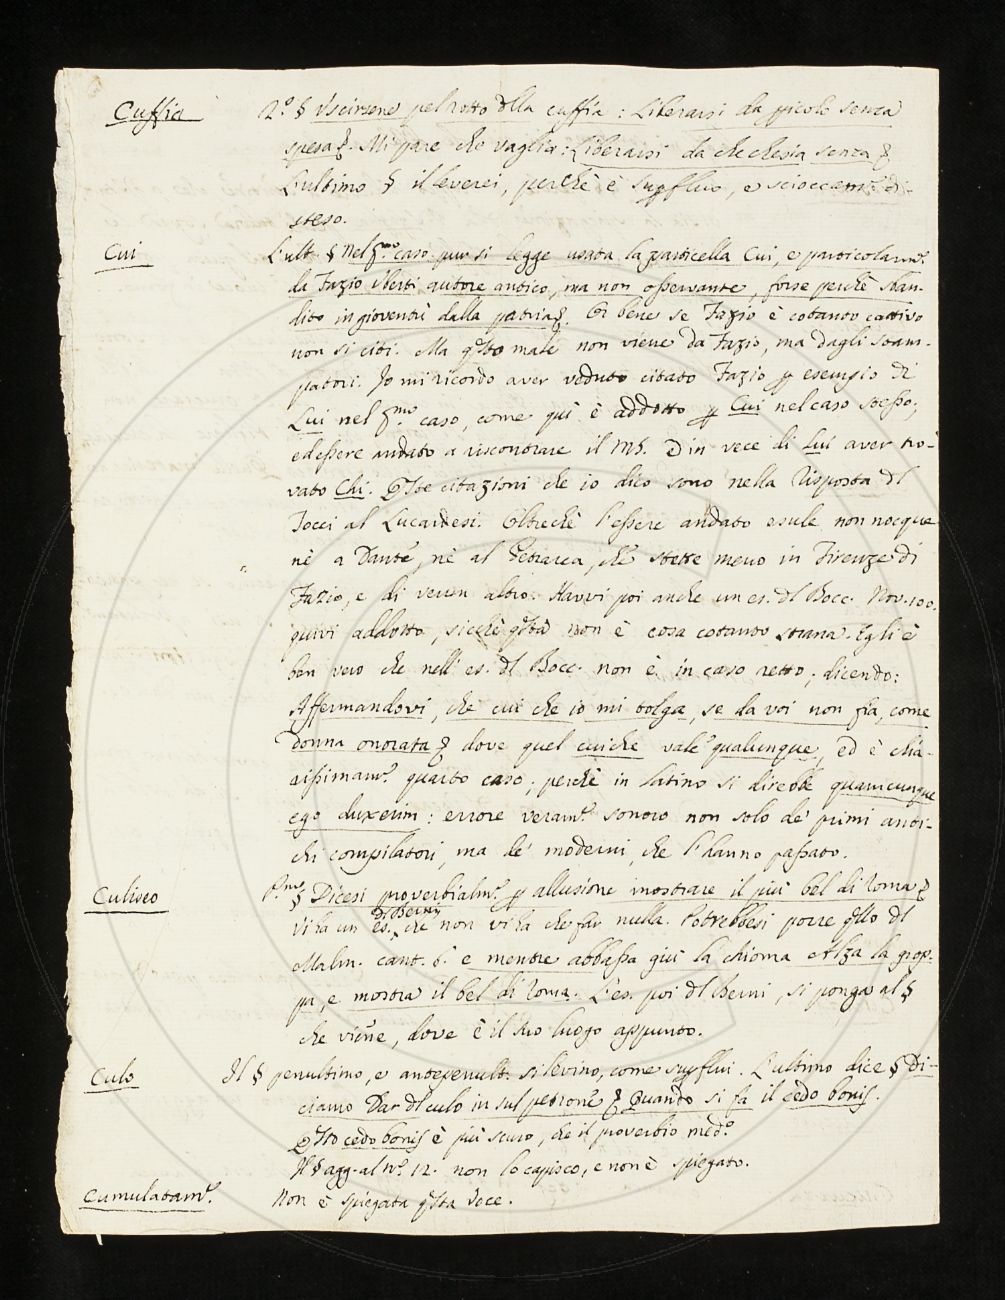 Cuffia 2.º § Uscirsene pel rotto dlla cuffia: Liberarsi da picole senza
spesa &. Mi pare che vaglia: Liberarsi da checchesia senza &.
L'ultimo § il leverei, perchè è supfluo, e scioccamte di-
steso.
Cui L'ult. § Nel pmo. caso pur si legge usata la particella Cui, e particolarmte.
da Fazio Uberti autore antico, ma non osservante, forse perchè sban-
dito in gioventù dalla patria &. Or bene se Fazio è cotanto cattivo
non si citi. Ma qsto male non viene da Fazio, ma dagli stam-
patori. Io mi ricordo aver veduto citato Fazio p esempio di
Lui nel pmo. caso, come quì è addotto p Cui nel caso stesso;
ed essere andato a riscontrare il MS. ed in vece di Lui aver tro-
vato Chi. Qste citazioni che io dico sono nella Risposta dl
Tocci al Lucardesi. Oltrechè l'essere andato esule non nocque
nè a Dante, nè al Petrarca, che stette meno in Firenze di
Fazio, e di verun altro. Havvi poi anche un es. dl Bocc. Nov. 100.
quivi addotto, sicchè qsta non è cosa cotanto strana. Egli è
ben vero che nell'es. dl Bocc. non è in caso retto; dicendo:
Affermandovi, che cui che io mi tolga, se da voi non fia, come
donna onorata & dove quel cuiche vale qualunque, ed è chia-
rissimamte. quarto caso; perchè in latino si direbbe quamcunque
ego duxerim: errore veramte. sonoro non solo de' primi anti-
chi compilatori, ma de' moderni, che l'hanno passato.
Culiseo Pmo. § Dicesi proverbialmte. p allusione mostrare il più bel di Roma &
dl Berni
Vi ha un es. che non vi ha che far nulla. Potrebbesi porre qllo dl
Malm. cant. 6. e mentre abbassa giù la chioma Alza la grop-
pa, e mostra il bel di Roma. L'es. poi dl Berni, si ponga al §
che viene, dove è il suo luogo appunto.
Culo Il § penultimo, e antepenult. si levino, come supflui. L'ultimo dice § Di-
ciamo Dar dl culo in sul petrone & Quando si fa il cedo bonis.
Qsto cedo bonis è più scuro, che il proverbio medo.
Il § agg. al No. 12. non lo capisco, e non è spiegato.
Cumulatamte. Non è spiegata qsta voce.